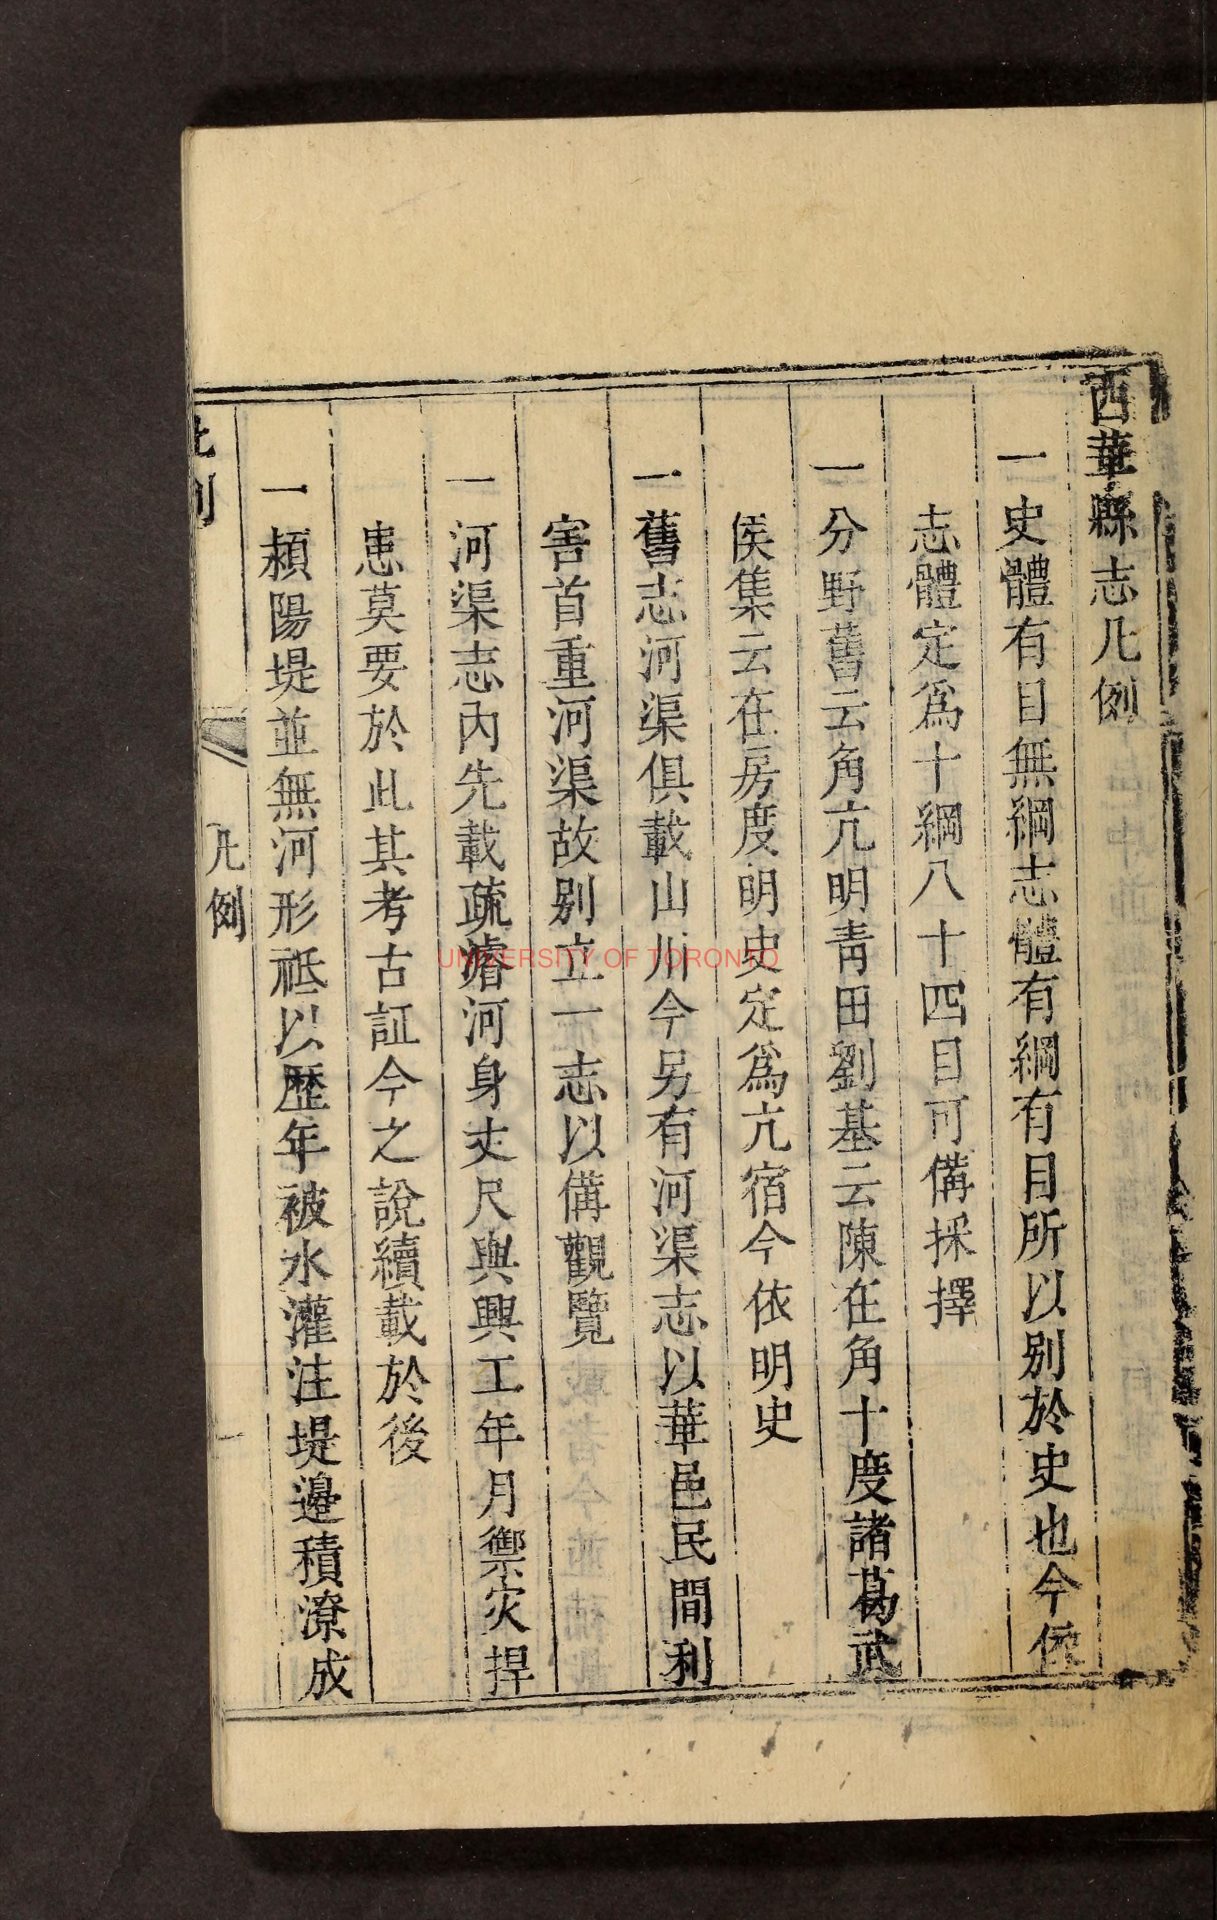 西華縣志凡例
一史體有目無綱志體有綱有目所以别於史也今依
志體定爲十綱八十四目可備採擇
一分野舊云角亢明靑田劉基云陳在角十度諸葛武
侯集云在房度明史定爲亢宿今依明史
一舊志河渠俱載山川今另有河渠志以華邑民間利
害首重河渠故别立一志以備觀覽
一河渠志內先載疏濬河身丈尺與興工年月禦災捍
患莫要於此其考古証今之說續載於後
一潁陽堤並無河形祗以歷年被水灌注堤邊積潦成
凡例
UNIVERSITY OF TORONTO